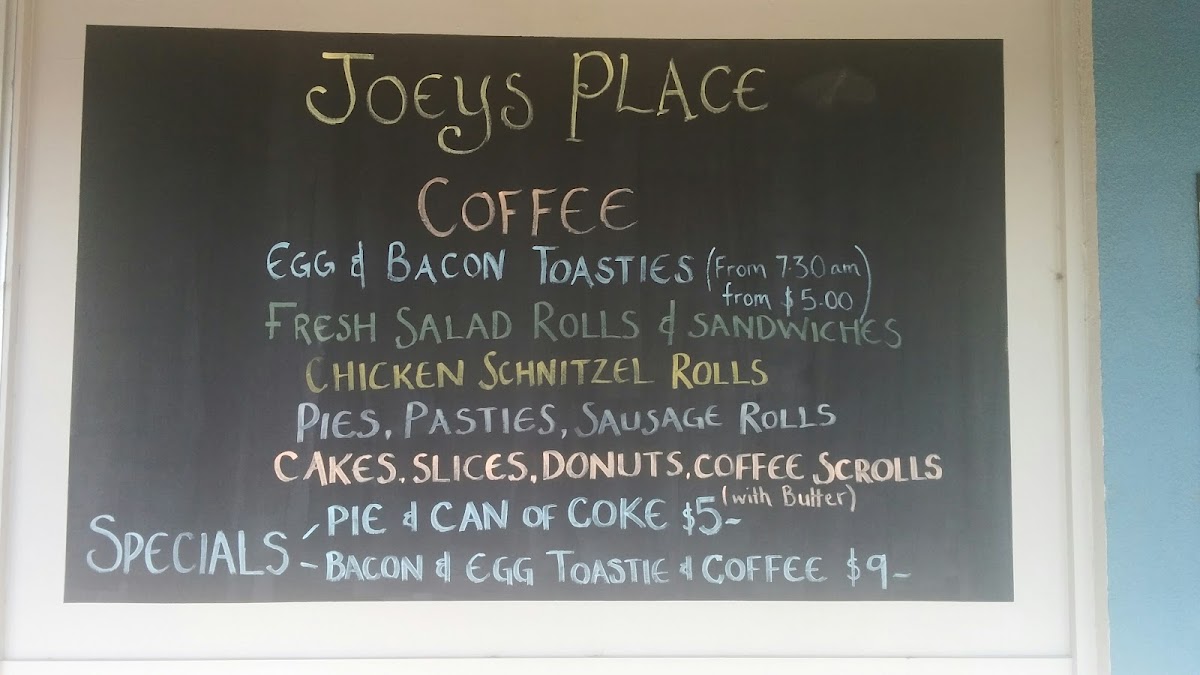 JOEYS PLACE
COFFEE
EGG & BACON TOASTIES (From 7.30am
from $5.00)
FRESH SALAD ROLLS & SANDWICHES
CHICKEN SCHNITZEL ROLLS
PIES, PASTIES, SAUSAGE ROLLS
CAKES, SLICES, DONUTS, COFFEE SCROLLS
(with Butter)
SPECIALS - PIE & CAN OF COKE $5-
- BACON & EGG TOASTIE & COFFEE $9-